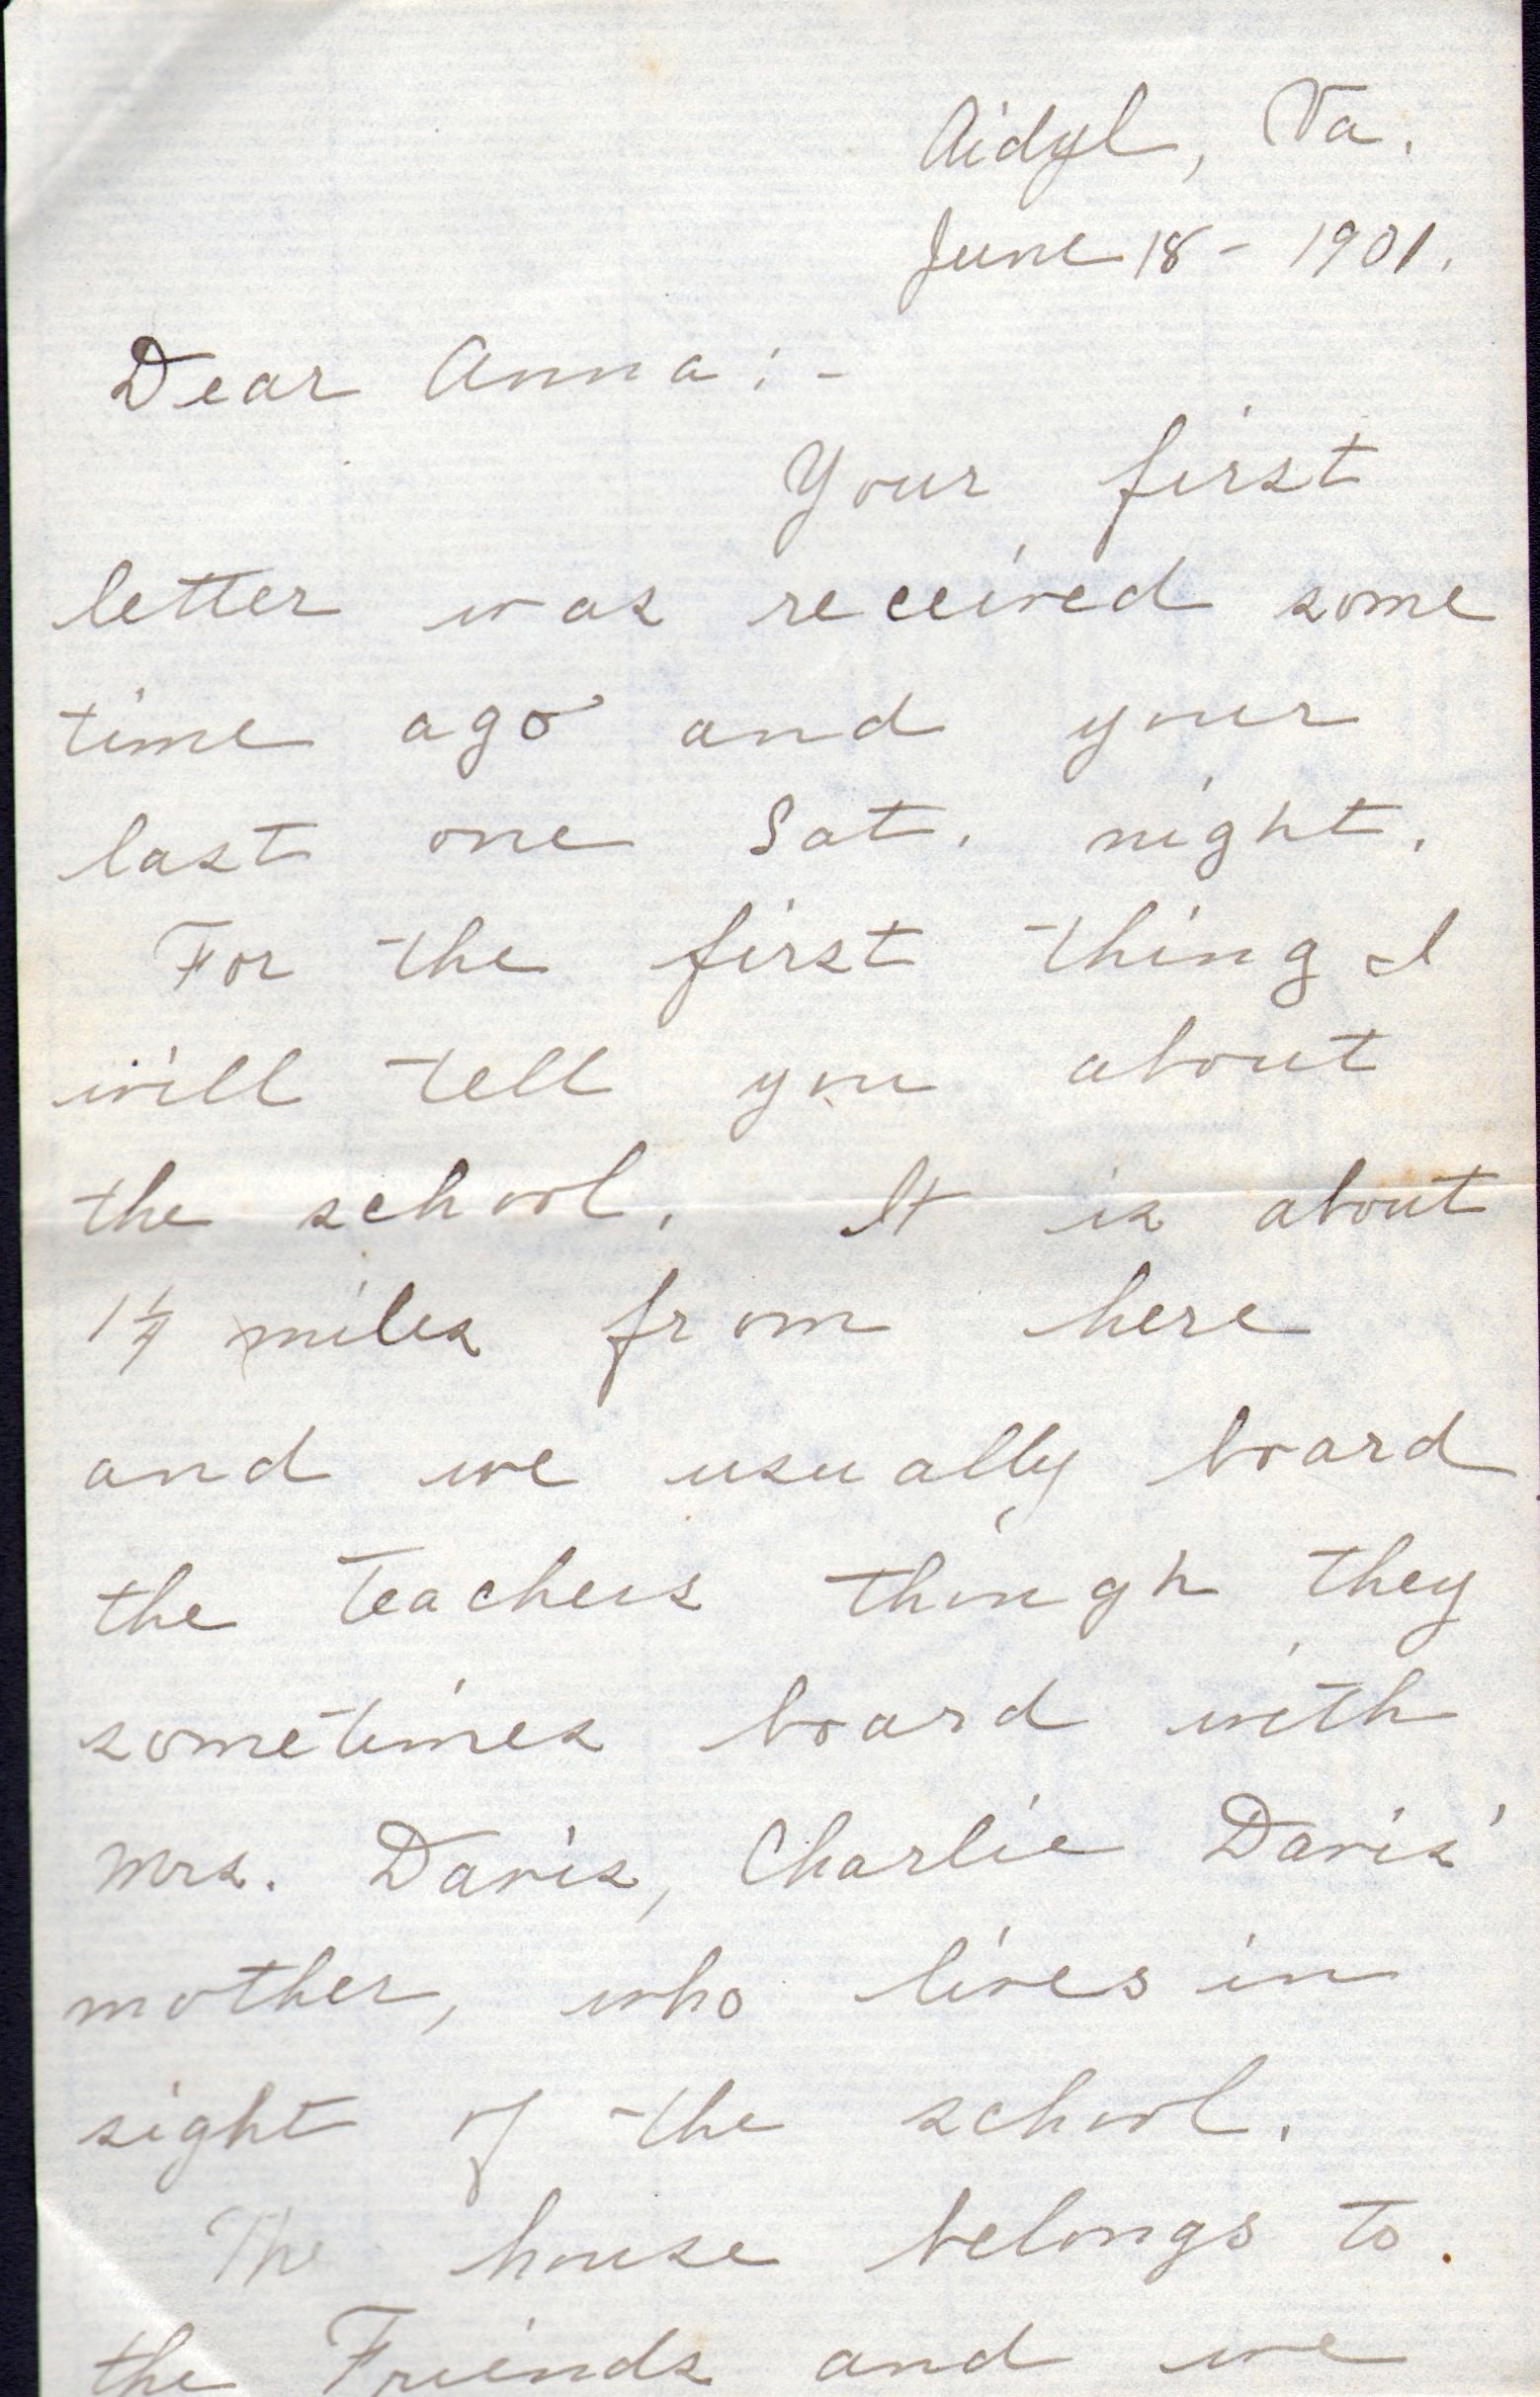 Aidyl, Va.
June 18 - 1901.
Dear Anna : -
Your first
letter was received some
time ago and your
last one Sat. night.
For the first thing I
will tell you about
the school. It is about
1 1/4 miles from here
and we usually board
the teachers though they
sometimes board with
Mrs. Davis, Charlie Davis'
mother, who lives in
sight of the school.
The house belongs to
the Friends and we